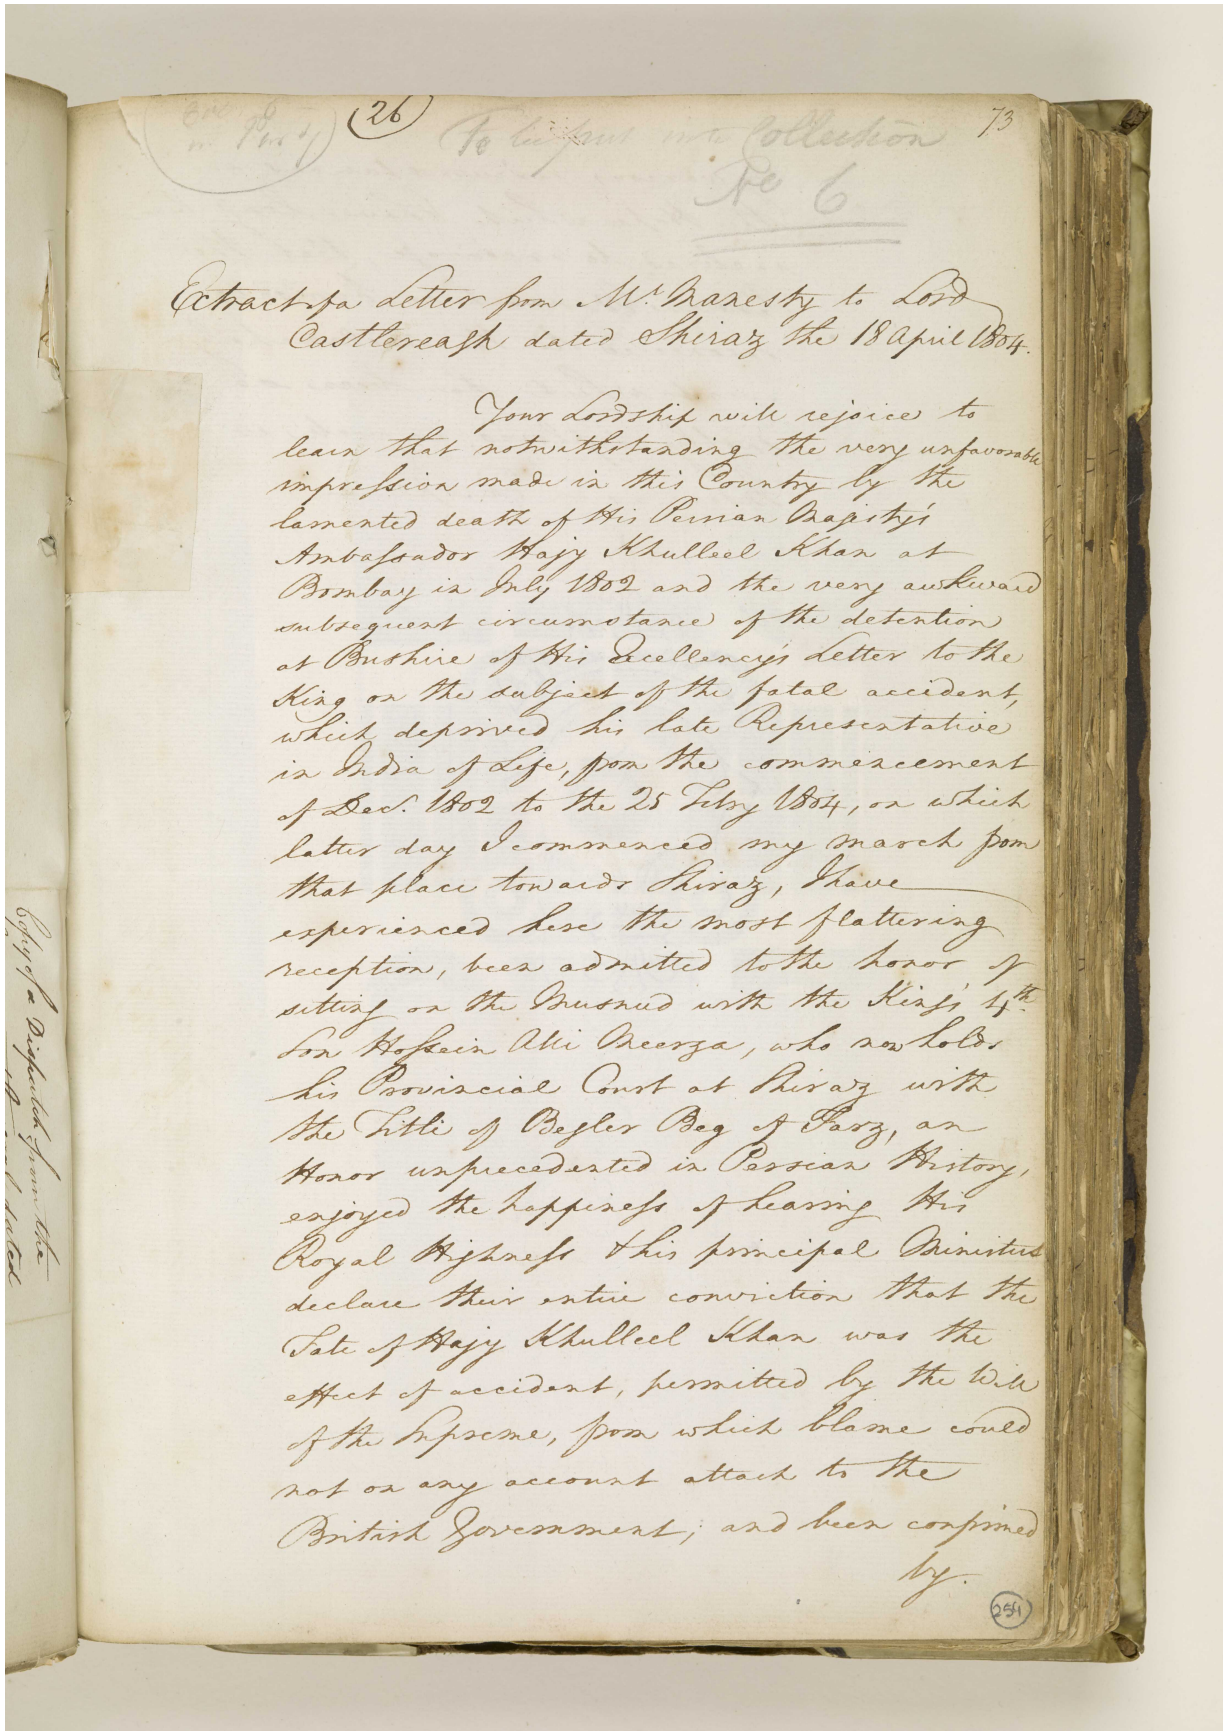 26
73
To be put into Collection
No 6
Extract of a Letter from Mr. Manesty to Lord
Castlereagh dated Shiraz the 18 April 1804.
Your Lordship will rejoice to
learn that notwithstanding the very unfavorable
impression made in this Country by the
lamented death of His Persian Majesty's
Ambassador Hajy Khulleel Khan at
Bombay in July 1802 and the very awkward
subsequent circumstance of the detention
at Bushire of His Excellency's Letter to the
King on the subject of the fatal accident,
which deprived his late Representative
in India of Life, from the commencement
of Decr. 1802 to the 25 Febry 1804, on which
latter day I commenced my march from
that place towards Shiraz, I have
experienced here the most flattering
reception, been admitted to the honor of
sitting on the Musnud with the King's 4th.
Son Hossein Alli Meerza, who now holds
his Provincial Court at Shiraz with
the Title of Begler Beg of Farz, an
Honor unprecedented in Persian History,
enjoyed the happiness of hearing His
Royal Highness & his principal Ministers
declare their entire conviction that the
Fate of Hajy Khulleel Khan was the
effect of accident, permitted by the Will
of the Supreme, from which blame could
not on any account attach to the
British Government; and been confirmed
by.
254
Copy of a Dispatch from the
dated